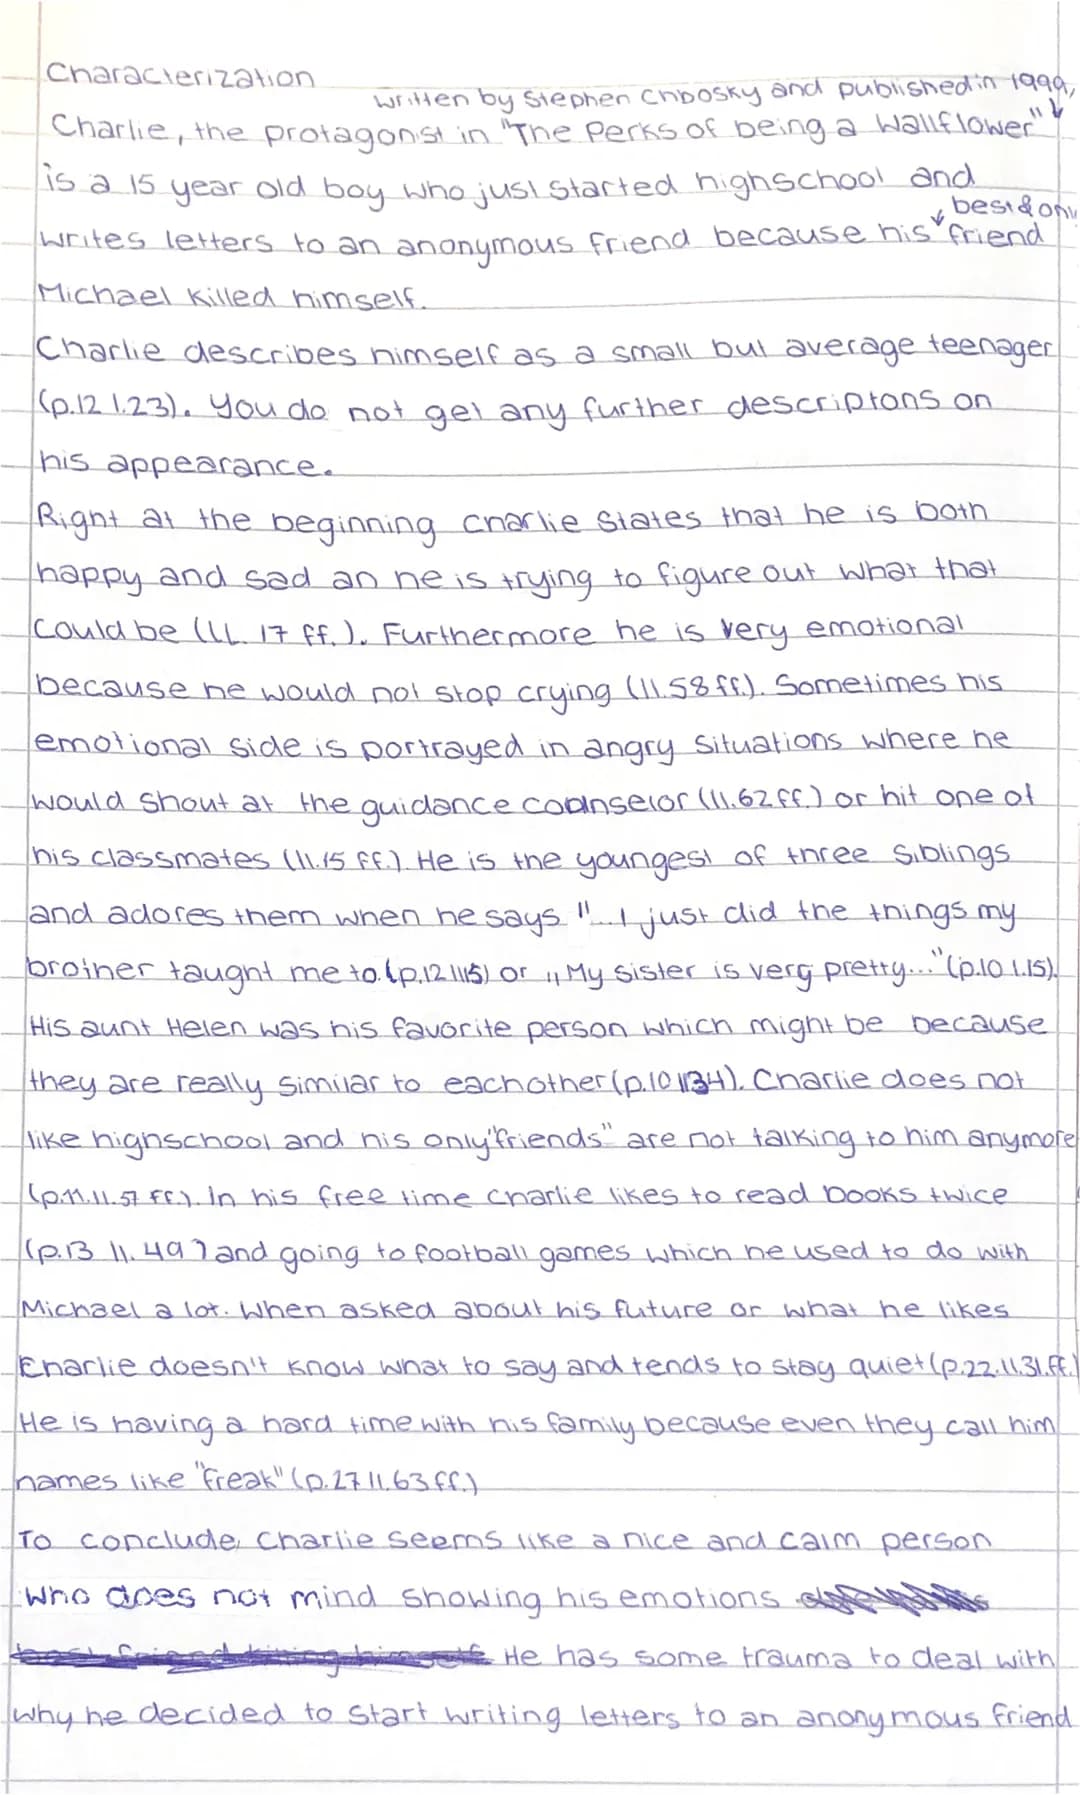 Characterization
written by Stephen Chbosky and published in 1999,
Charlie, the protagonist in "The Perks of being a Wallflower"
is a 15 year old boy who just started highschool and
best & only
writes letters to an anonymous friend because his friend
Michael killed himself.
Charlie describes himself as a small but average teenager
(p.12 l.23). You do not get any further descriptons on
his appearance.
Right at the beginning Charlie states that he is both
happy and sad an he is trying to figure out what that
could be (ll. 17 ff.). Furthermore he is very emotional
because he would not stop crying (ll.58 ff.). Sometimes his
emotional side is portrayed in angry situations where he
would shout at the guidance counselor (ll.62 ff.) or hit one of
his classmates (ll.15 ff.). He is the youngest of three siblings
and adores them when he says "...I just did the things my
brother taught me to. (p.12 ll15) or „My sister is very pretty..." (p.10 l.15).
His aunt Helen was his favorite person which might be because
they are really similar to eachother (p.10 ll34). Charlie does not
like highschool and his only "friends" are not talking to him anymore
(p.11. ll.57 ff.). In his free time Charlie likes to read books twice
(p.13 ll. 49) and going to football games which he used to do with
Michael a lot. When asked about his future or what he likes
Charlie doesn't know what to say and tends to stay quiet (p.22. ll.31.ff.)
He is having a hard time with his family because even they call him
names like "freak" (p.27 ll.63 ff.)
To conclude, Charlie seems like a nice and calm person
who does not mind showing his emotions
He has some trauma to deal with
why he decided to start writing letters to an anonymous friend